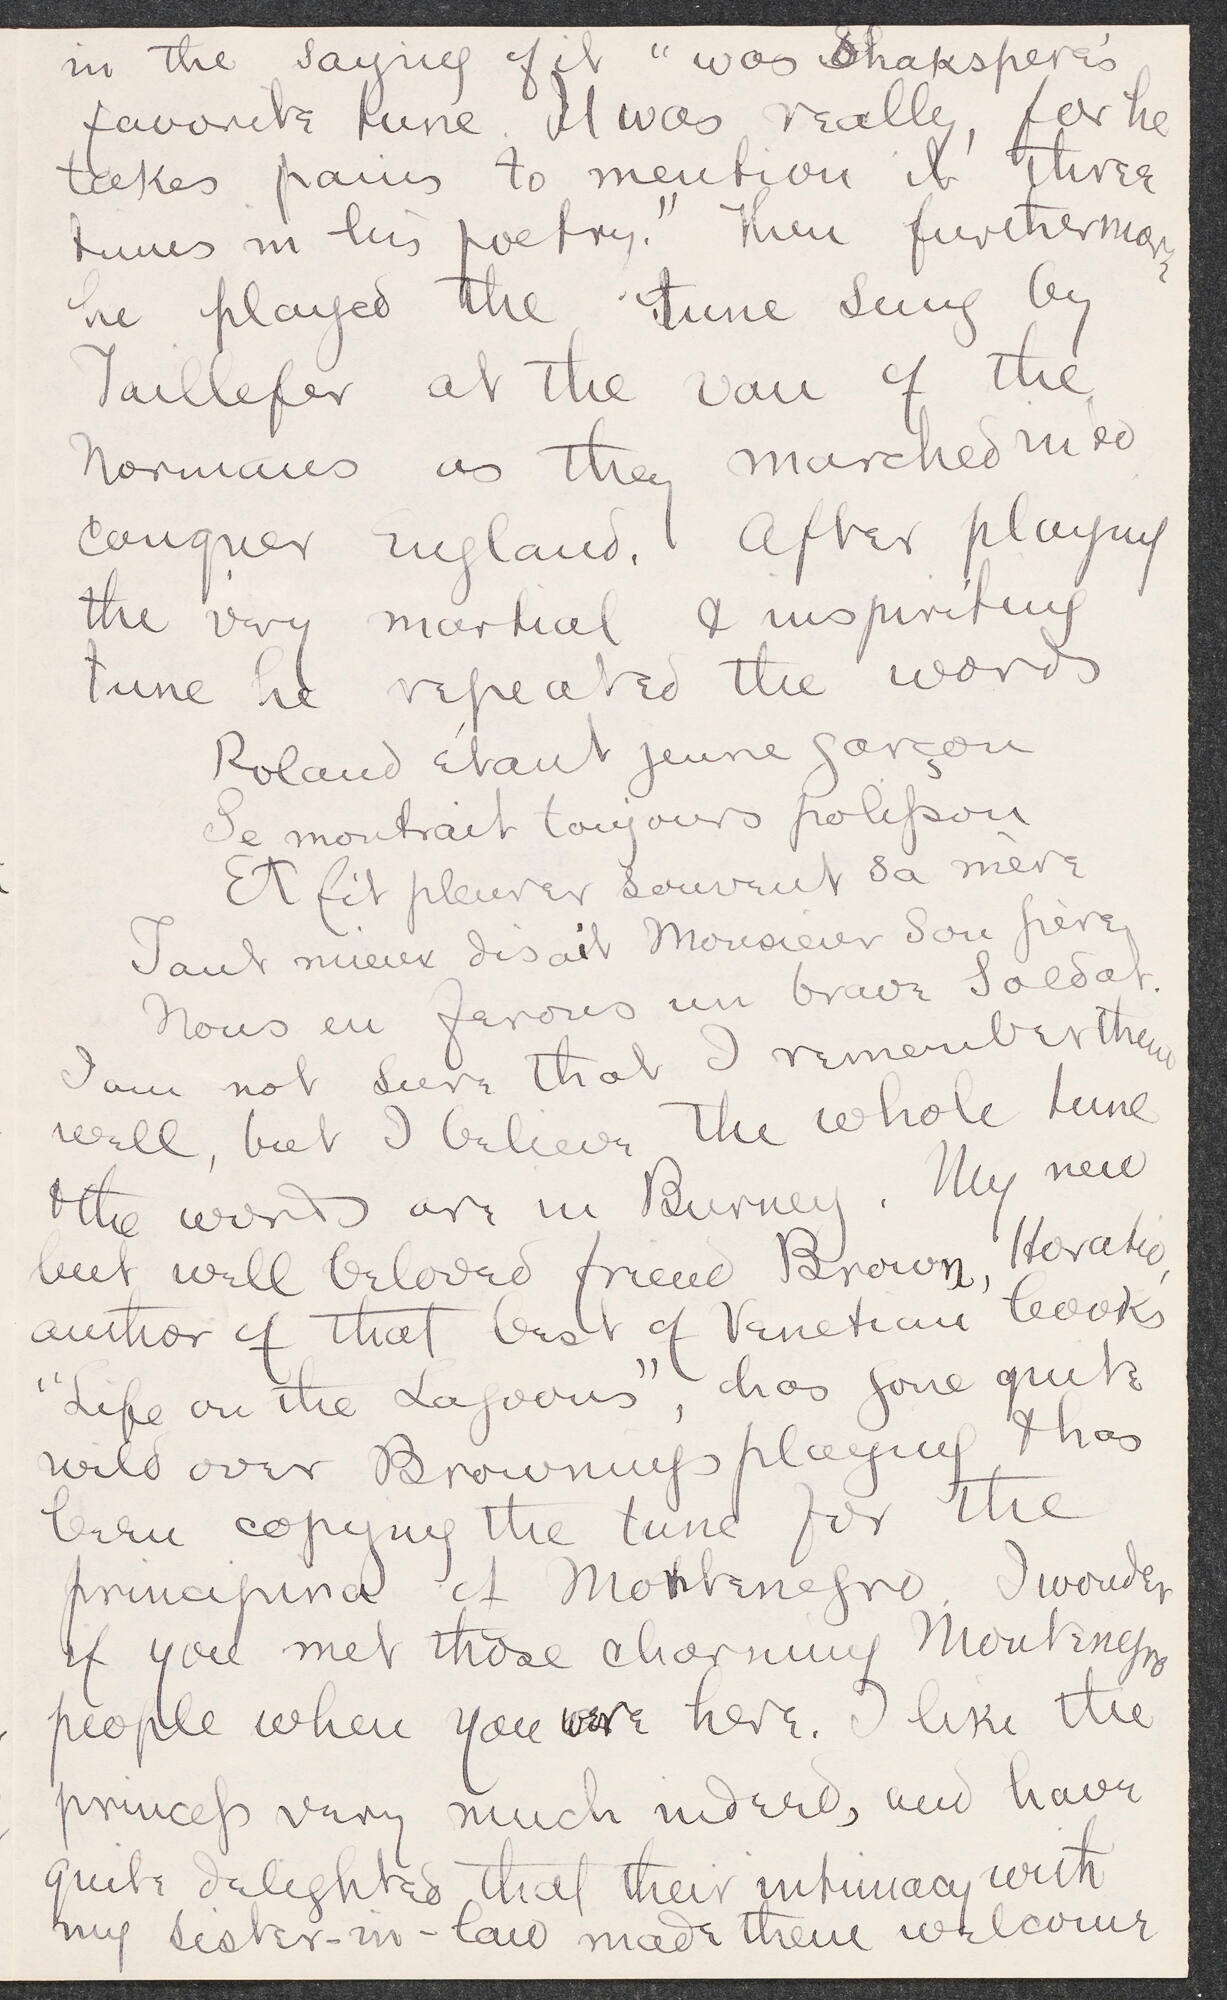 in the saying of it "was Shakspere's
favorite tune. It was really, for he
takes pains to mention it three
times in his poetry." Then furthermore
he played the tune sung by
Taillefer at the van of the
Normans as they marched in to
conquer England. After playing
the very martial & inspiriting
tune he repeated the words
Roland étant jeune garçon
Se montrait toujours polisson
Et fit pleurer souvent sa mère
Tant mieux disait Monsieur son père
Nous en ferons un brave soldat.
I am not sure that I remember them
well, but I believe the whole tune
& the words are in Burney. My new
but well beloved friend Brown, Horatio,
author of that best of Venetian books
"Life on the Lagoons", has gone quite
wild over Brownings playing & has
been copying the tune for the
of Montenegro. I wonder
if you met those charming Montenegro
people when you were here. I like the
princess very much indeed, and have
quite delighted that their intimacy with
my sister-in-law made them welcome